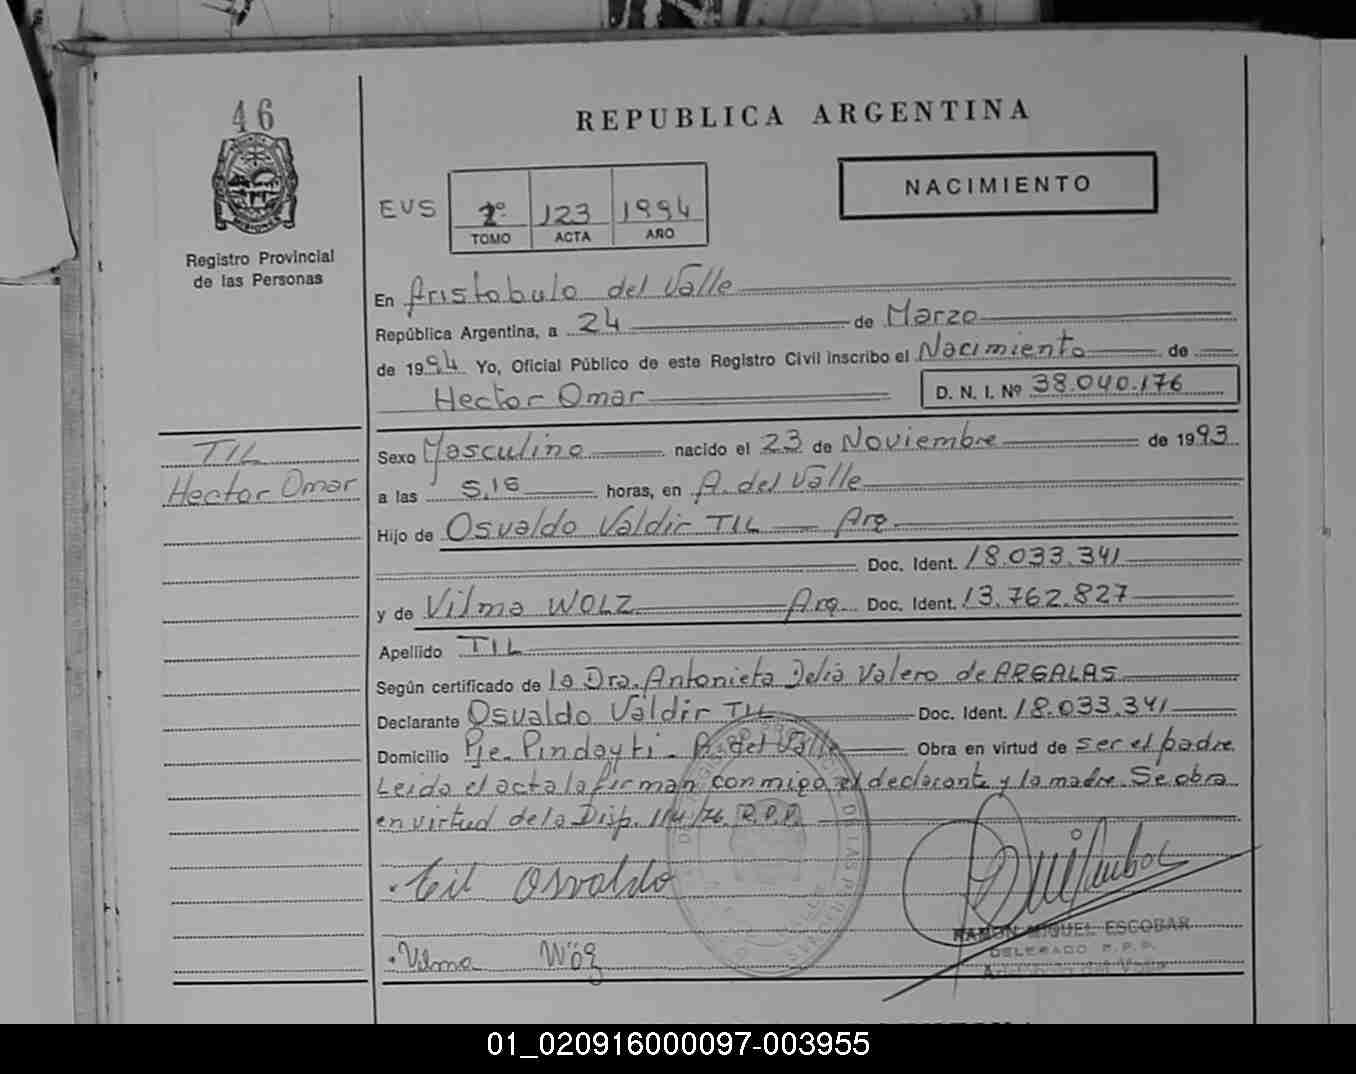 46
REPUBLICA ARGENTINA
NACIMIENTO
EVS 2º 123 1994
TOMO ACTA AÑO
Registro Provincial
de las Personas
En Aristobulo del Valle
República Argentina, a 24 de Marzo
de 1994 Yo, Oficial Público de este Registro Civil inscribo el Nacimiento de
Hector Omar D. N. I. Nº 38.040.176
TIL
Hector Omar
Sexo Masculino nacido el 23 de Noviembre de 1993
a las 5,15 horas, en A. del Valle
Hijo de Osvaldo Valdir TIL Arg.
Doc. Ident. 18.033.341
y de Vilma WOLZ Arg. Doc. Ident. 13.762.827
Apellido TIL
Según certificado de la Dra. Antonieta Delia Valero de ARGALAS
Declarante Osvaldo Valdir TIL Doc. Ident. 18.033.341
Domicilio Pje. Pindayti - A. del Valle Obra en virtud de ser el padre
Leida el acta la firman conmigo el declarante y la madre. Se obra
en virtud de la Disp. 114/76 R.P.P.
Til Osvaldo
Vilma Wölz
RAMON MIGUEL ESCOBAR
DELEGADO R.P.P.
Aristobulo del Valle
01_020916000097-003955